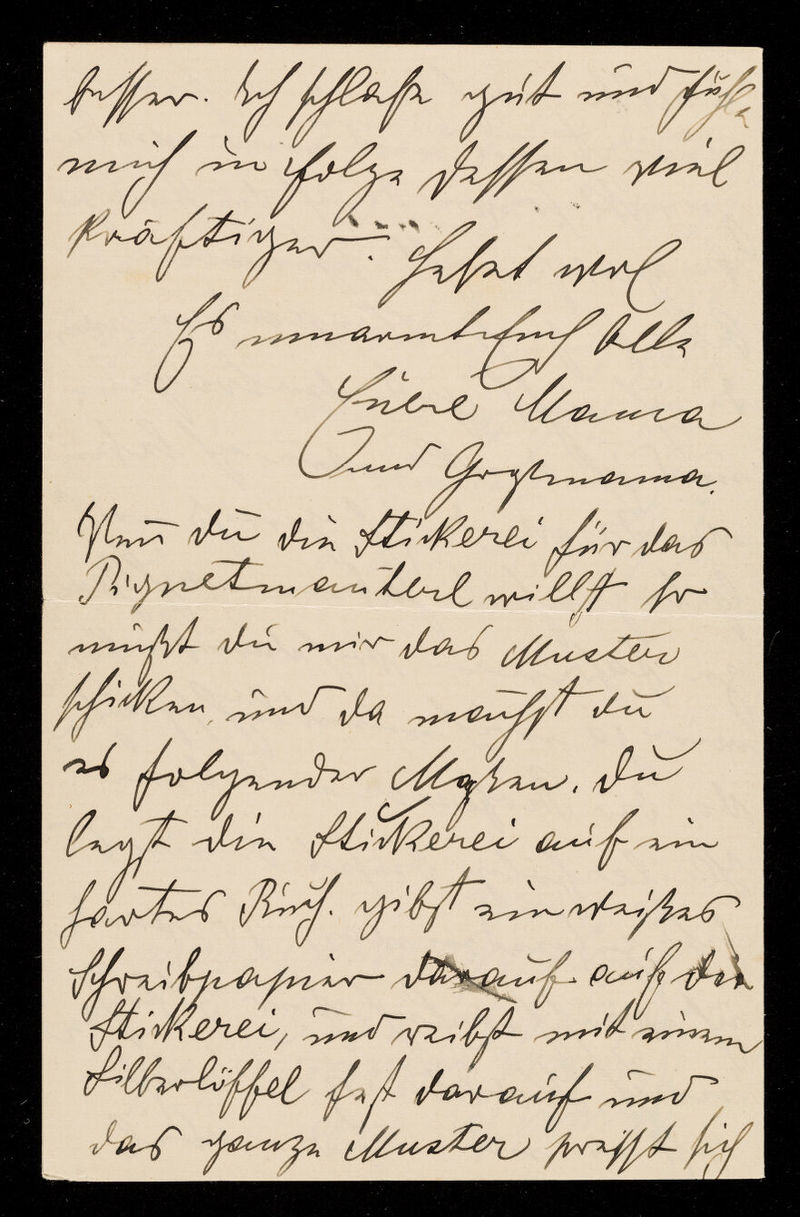 besser. Ich schlafe gut und fühle
mich in folge dessen viel
kräftiger. Lebet wol
Es umarmt Euch Alle
Eure Mama
und Großmama.
Wen du die Stickerei für das
Piquetmanterl willst so
mußt du mir das Muster
schicken, und da machst du
es folgender Maßen. Du
legst die Stickerei auf ein
hartes Buch. gibst ein weißes
Schreibpapier darauf auf die
Stickerei, und reibst mit einem
Silberlöffel fest darauf und
das ganze Muster presst sich